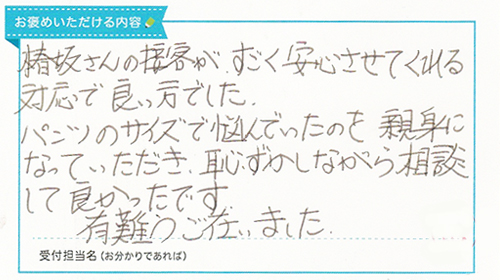 お褒めいただける内容
椿坂さんの接客が、すごく安心させてくれる
対応で良い方でした。
パンツのサイズで悩んでいったのを親身に
なっていただき、恥ずかしながら相談
して良かったです。
有難うご在いました。
受付担当名(お分かりであれば)